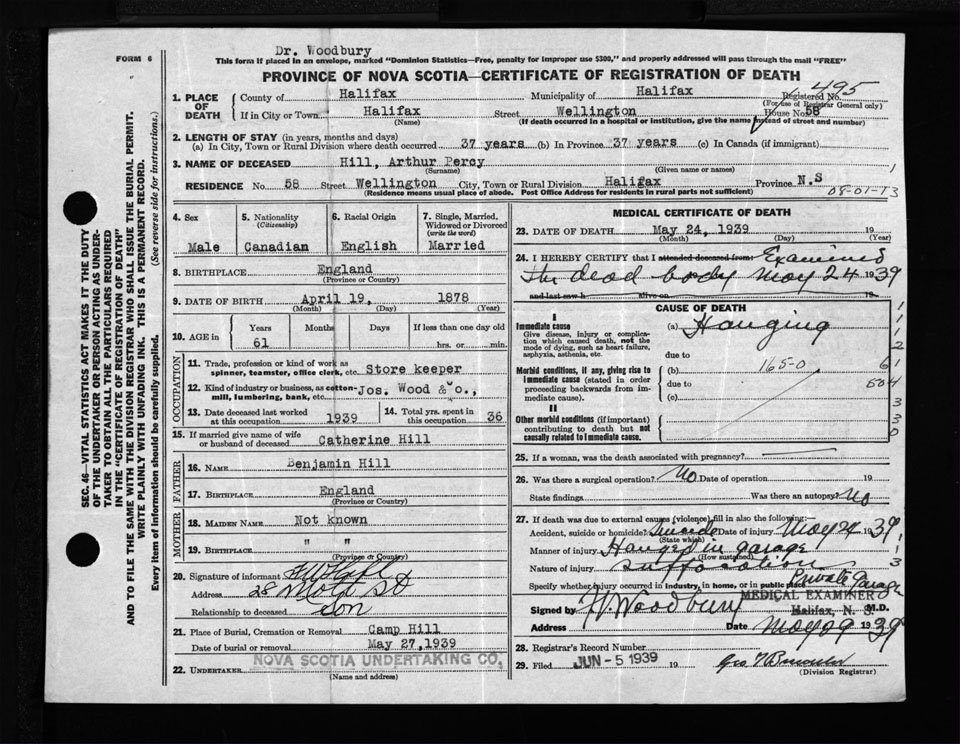 Dr. Woodbury
FORM 6
This form if placed in an envelope, marked "Dominion Statistics—Free, penalty for improper use $300," and properly addressed will pass through the mail "FREE"
PROVINCE OF NOVA SCOTIA—CERTIFICATE OF REGISTRATION OF DEATH
495
Registered No.
(For use of Registrar General only)
1. PLACE OF DEATH
County of Halifax Municipality of Halifax
If in City or Town Halifax Street Wellington House No. 58
(Name) (If death occurred in a hospital or institution, give the name instead of street and number)
2. LENGTH OF STAY (in years, months and days)
(a) In City, Town or Rural Division where death occurred 37 years (b) In Province 37 years (c) In Canada (if immigrant)
3. NAME OF DECEASED Hill, Arthur Percy
(Surname) (Given name or names)
1
RESIDENCE No. 58 Street Wellington City, Town or Rural Division Halifax Province N.S
(Residence means usual place of abode. Post Office Address for residents in rural parts not sufficient)
08-01-13
4. Sex
Male
5. Nationality
(Citizenship)
Canadian
6. Racial Origin
English
7. Single, Married, Widowed or Divorced
(write the word)
Married
8. BIRTHPLACE England
(Province or Country)
9. DATE OF BIRTH April 19, 1878
(Month) (Day) (Year)
10. AGE in
Years Months Days If less than one day old
61 hrs. or min.
OCCUPATION
11. Trade, profession or kind of work as
spinner, teamster, office clerk, etc. Store keeper
12. Kind of industry or business, as cotton-
mill, lumbering, bank, etc. Jos. Wood & Co.,
13. Date deceased last worked
at this occupation 1939
14. Total yrs. spent in
this occupation 36
15. If married give name of wife
or husband of deceased Catherine Hill
FATHER
16. NAME Benjamin Hill
17. BIRTHPLACE England
(Province or Country)
MOTHER
18. MAIDEN NAME Not known
19. BIRTHPLACE " "
(Province or Country)
20. Signature of informant
Address 28 St
Relationship to deceased Son
21. Place of Burial, Cremation or Removal Camp Hill
Date of burial or removal May 27, 1939
22. UNDERTAKER NOVA SCOTIA UNDERTAKING CO.
(Name and address)
MEDICAL CERTIFICATE OF DEATH
23. DATE OF DEATH May 24, 1939 19
(Month) (Day) (Year)
24. I HEREBY CERTIFY that I attended deceased from: Examined
the dead body May 24 1939
and last saw h alive on 19
CAUSE OF DEATH
I
Immediate cause
Give disease, injury or complication which caused death, not the mode of dying, such as heart failure, asphyxia, asthenia, etc.
(a) Hanging
due to
Morbid conditions, if any, giving rise to Immediate cause (stated in order proceeding backwards from immediate cause).
(b) 165-0
due to
(c)
II
Other morbid conditions (if important) contributing to death but not causally related to Immediate cause.
1
1
1
2
61
504
3
3
0
25. If a woman, was the death associated with pregnancy?
26. Was there a surgical operation? No Date of operation 19
State findings Was there an autopsy? No
27. If death was due to external causes (violence) fill in also the following:—
Accident, suicide or homicide? Suicide Date of injury May 24 1939
(State which)
Manner of injury Hanged in garage
(How sustained)
Nature of injury Suffocation
Specify whether injury occurred in industry, in home, or in public place Private Garage
1
3
Signed by Woodbury M.D.
MEDICAL EXAMINER
Halifax, N. S.
Address Date May 29 1939
28. Registrar's Record Number
29. Filed JUN - 5 1939 19
(Division Registrar)
SEC. 46—VITAL STATISTICS ACT MAKES IT THE DUTY
OF THE UNDERTAKER OR PERSON ACTING AS UNDER-
TAKER TO OBTAIN ALL THE PARTICULARS REQUIRED
IN THE "CERTIFICATE OF REGISTRATION OF DEATH"
AND TO FILE THE SAME WITH THE DIVISION REGISTRAR WHO SHALL ISSUE THE BURIAL PERMIT.
WRITE PLAINLY WITH UNFADING INK. THIS IS A PERMANENT RECORD.
Every item of Information should be carefully supplied. (See reverse side for instructions.)